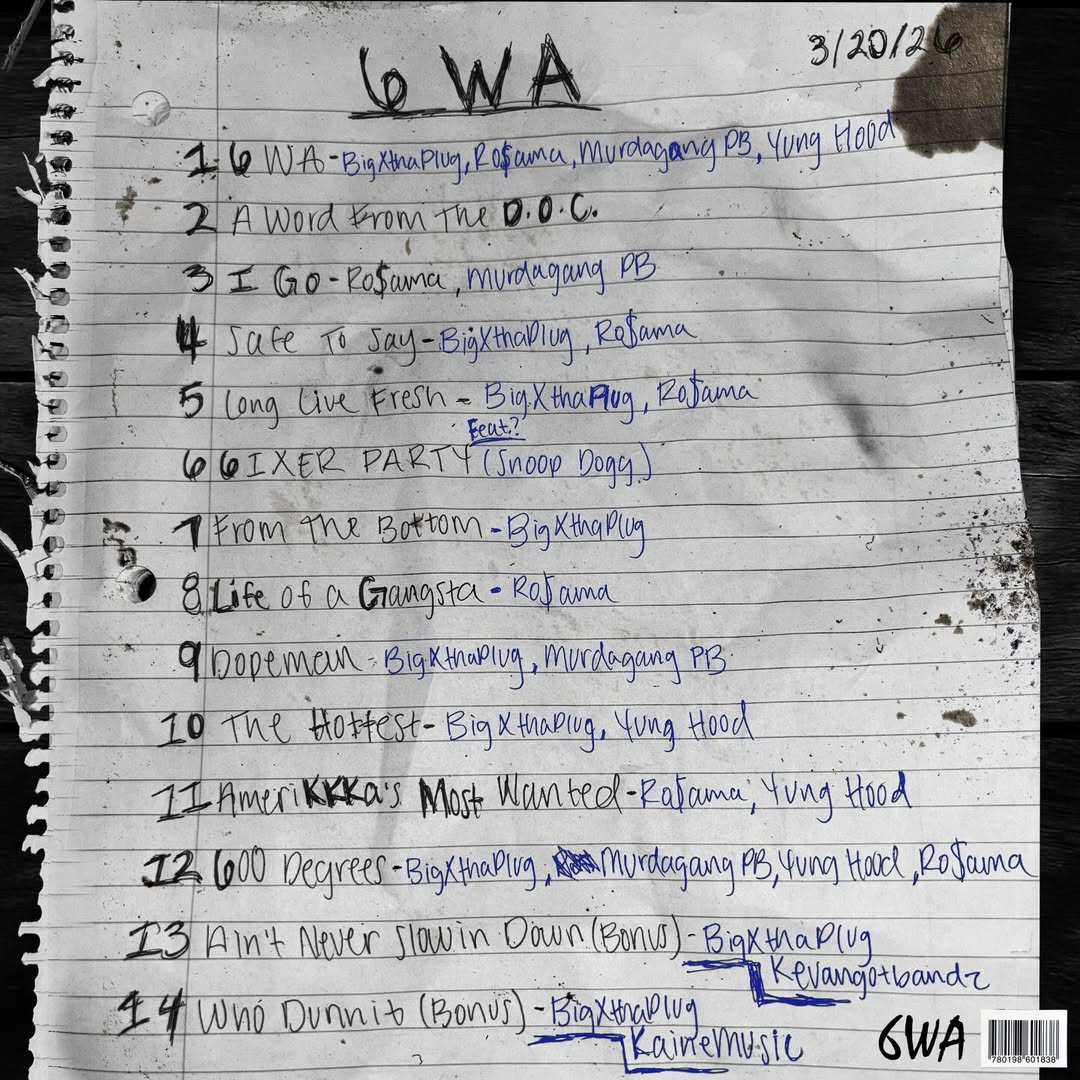 6 WA
3/20/26
1 6 WA - BigXthaPlug, Ro$ama, Murdagang PB, Yung Hood
2 A Word From The D.O.C.
3 I Go - Ro$ama, Murdagang PB
4 Safe To Say - BigXthaPlug, Ro$ama
5 Long Live Fresh - BigXthaPlug, Ro$ama
Feat.?
6 6IXER PARTY (Snoop Dogg)
7 From The Bottom - BigXthaPlug
8 Life of a Gangsta - Ro$ama
9 Dopeman - BigXthaPlug, Murdagang PB
10 The Hottest - BigXthaPlug, Yung Hood
11 AmeriKKKa's Most Wanted - Ro$ama, Yung Hood
12 600 Degrees - BigXthaPlug, Murdagang PB, Yung Hood, Ro$ama
13 Ain't Never Slowin Down (Bonus) - BigXthaPlug
Kevangotbandz
14 Who Dunnit (Bonus) - BigXthaPlug
KaineMusic
6WA
780198 601838